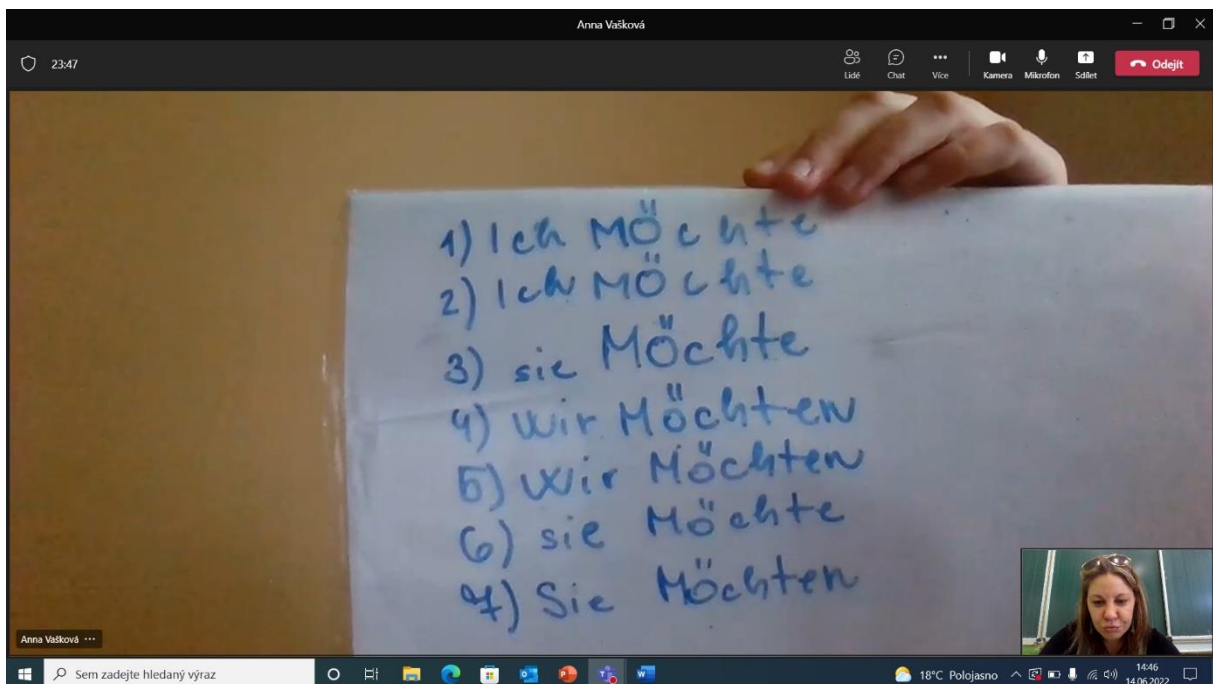 Anna Vašková
23:47
Lidé
Chat
Více
Kamera
Mikrofon
Sdílet
Odejít
1) Ich MÖchte
2) Ich MÖchte
3) sie Möchte
4) Wir Möchten
5) Wir Möchten
6) sie Möchte
7) Sie Möchten
Anna Vašková ...
Sem zadejte hledaný výraz
18°C Polojasno
14:46
14.06.2022